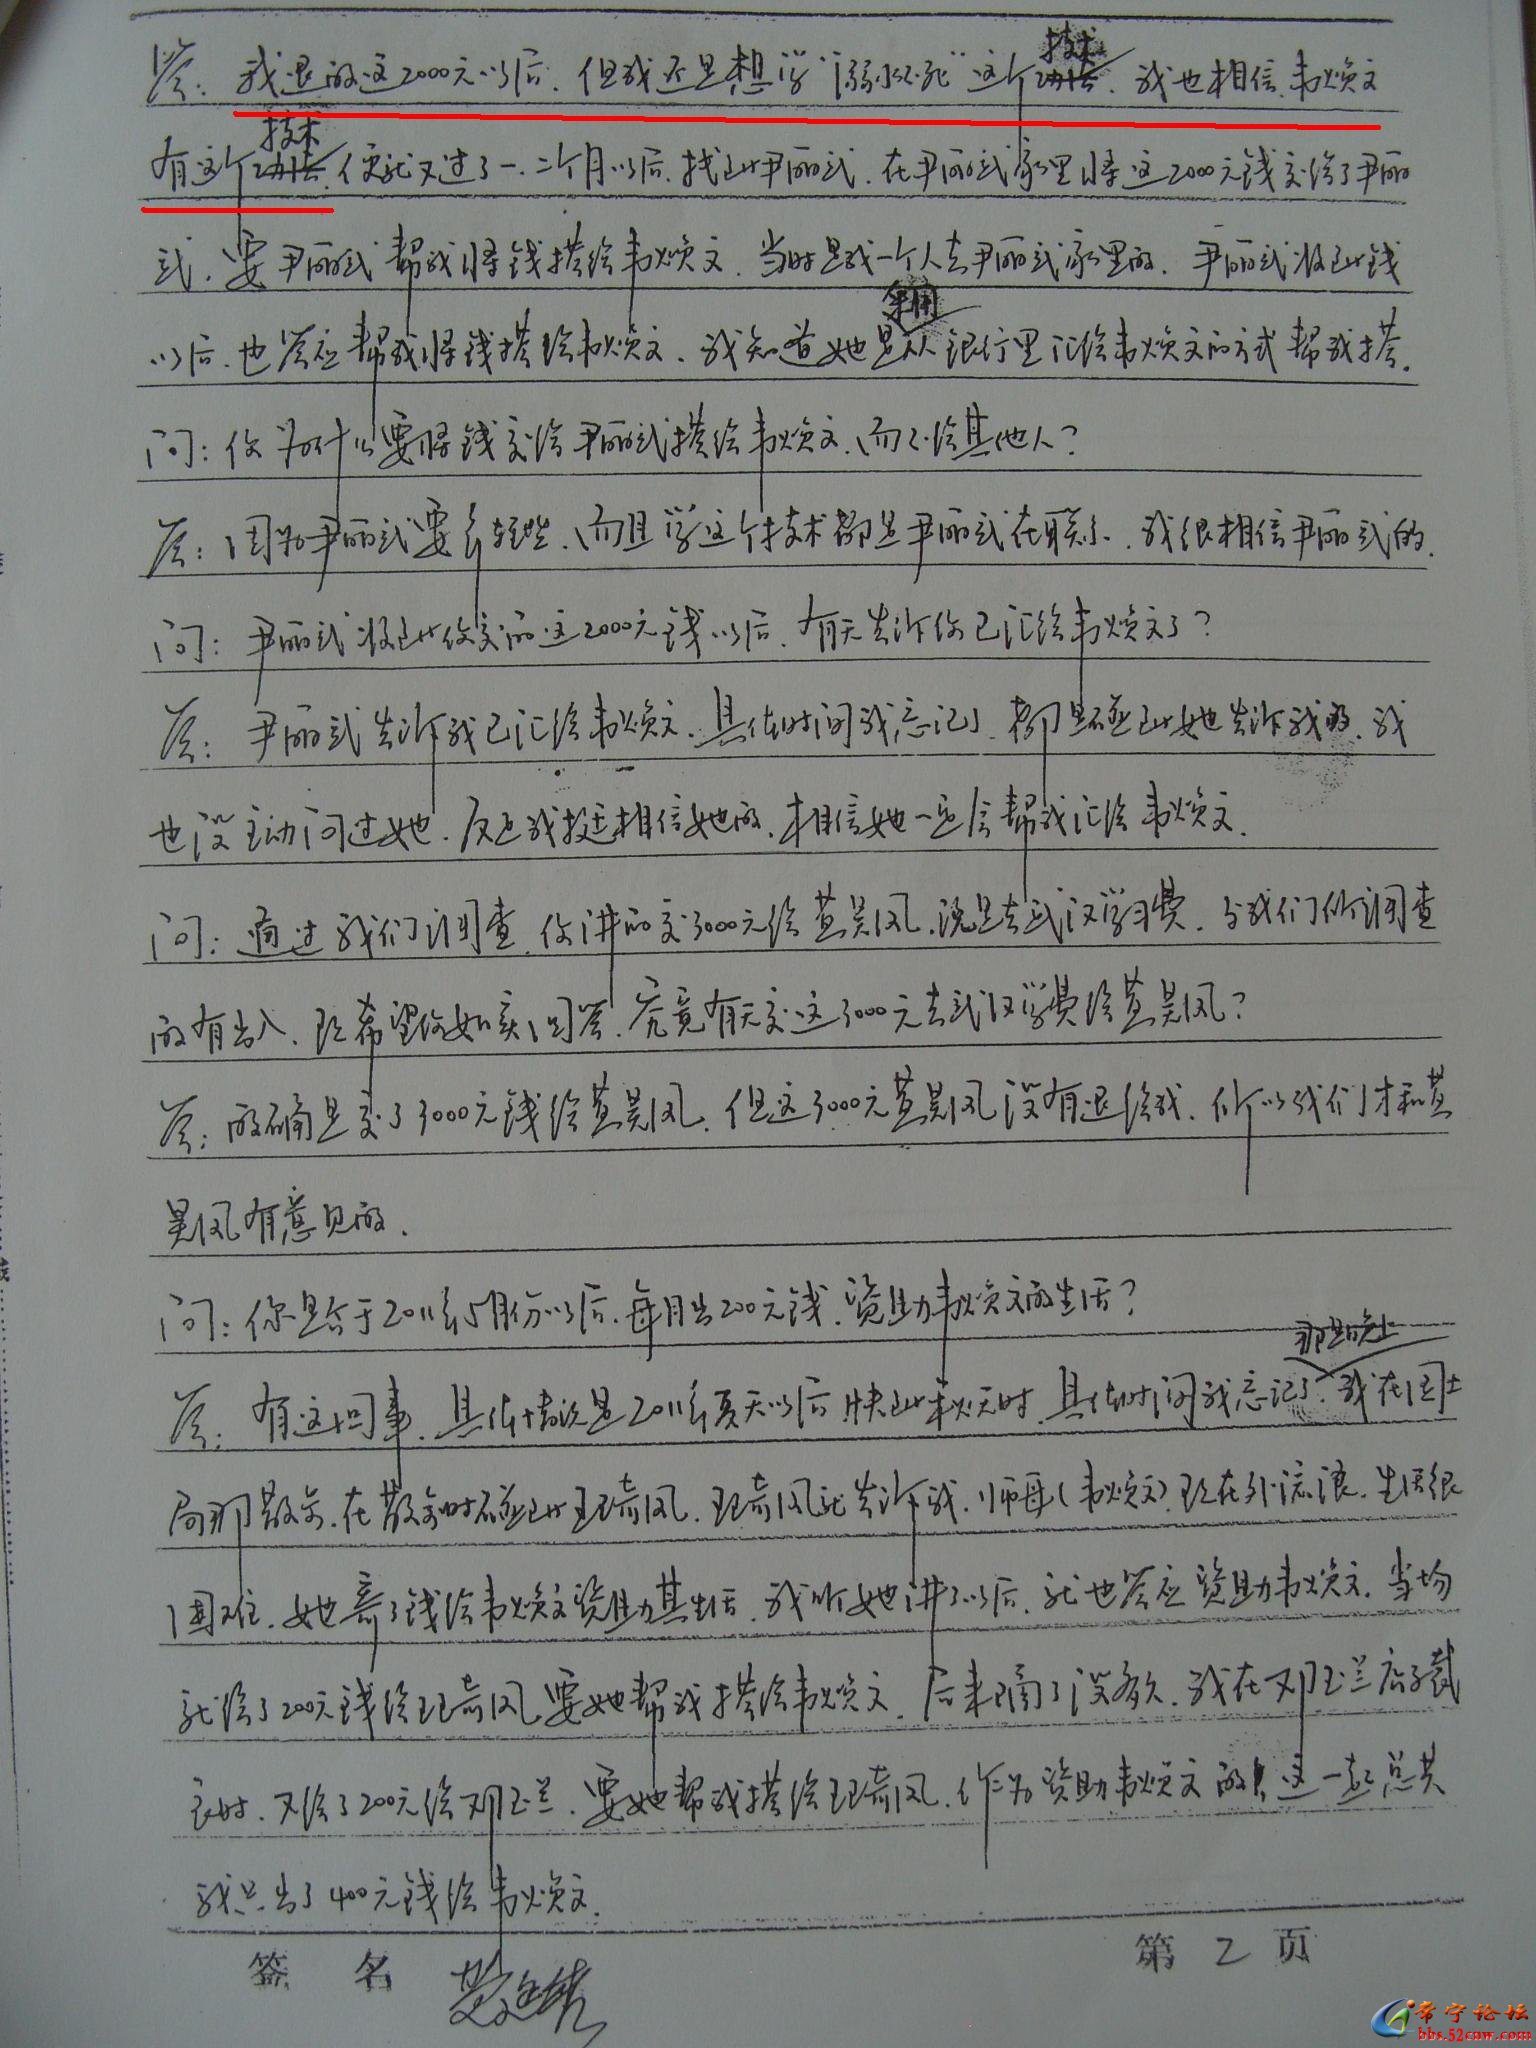 答：我退的这2000元以后，但我还是想学"溺水不死"这个技术，我也相信韦焕文
有这个技术，便就又过了一、二个月以后，找到尹丽武，在尹丽武家里将这2000元钱交给了尹丽
武，要尹丽武帮我将钱搭给韦焕文，当时是我一个人去尹丽武家里的，尹丽武收到钱
以后，也答应帮我将钱搭给韦焕文，我知道她是采用从银行里汇给韦焕文的方式帮我搭。
问：你为什么要将钱交给尹丽武搭给韦焕文，而不给其他人？
答：因为尹丽武要年轻些，而且学这个技术都是尹丽武在联系，我很相信尹丽武的。
问：尹丽武收到你交的这2000元钱以后，有无告诉你已汇给韦焕文了？
答：尹丽武告诉我已汇给韦焕文，具体时间我忘记了，都是碰到她告诉我的，我
也没主动问过她，反正我挺相信她的，相信她一定会帮我汇给韦焕文。
问：通过我们调查，你讲的交3000元给黄昊凤，说是去武汉学习费，与我们所调查
的有出入，现希望你如实回答，究竟有无交这3000元去武汉学费给黄昊凤？
答：的确是交了3000元钱给黄昊凤，但这3000元黄昊凤没有退给我，所以我们才和黄
昊凤有意见的。
问：你是否于2011年5月份以后，每月出200元钱，资助韦焕文的生活？
答：有这回事，具体情况是2011年夏天以后快到秋天时，具体时间我忘记了，那是晚上我在国土
局那散步，在散步时碰到王琦凤，王琦凤就告诉我，师母（韦焕文）现在外流浪，生活很
困难，她寄了钱给韦焕文资助其生活，我听她讲了以后，就也答应资助韦焕文，当场
就给了200元钱给王琦凤要她帮我搭给韦焕文，后来隔了没多久，我在邓玉兰店子裁
衣时，又给了200元给邓玉兰，要她帮我搭给王琦凤，作为资助韦焕文的，这一起总共
我只出了400元钱给韦焕文。
签 名
第 2 页
常宁论坛
bbs.52cnw.com